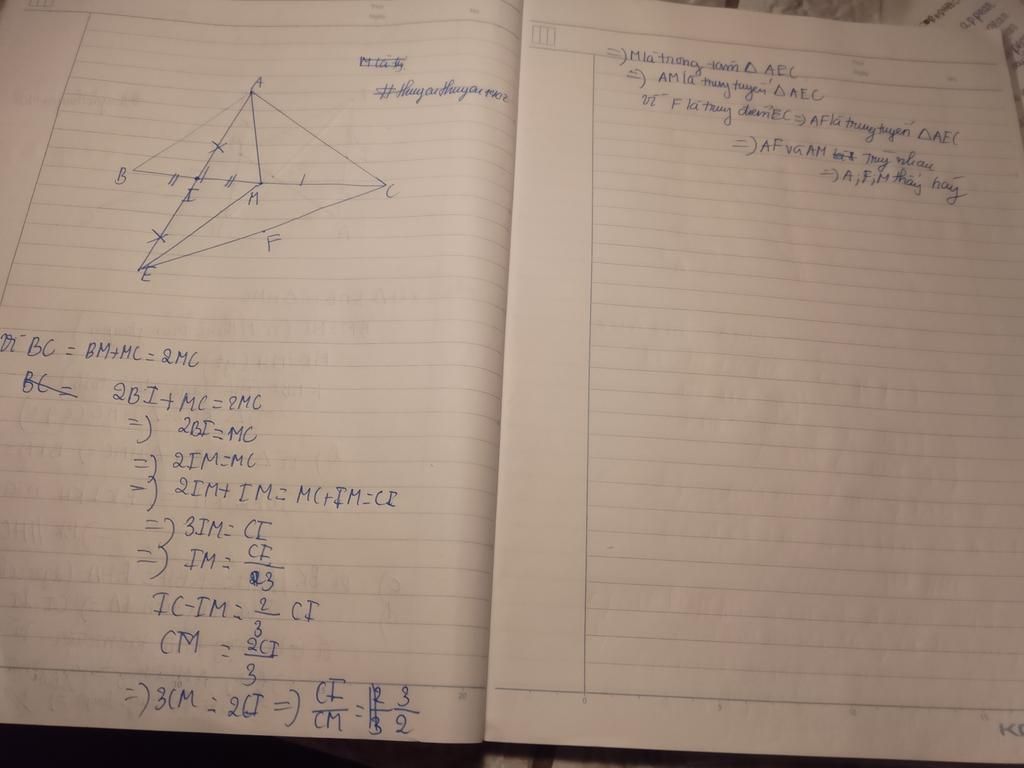 M là tr
#thuyanthuyan1902
A
B
I
M
C
E
F
Vì BC = BM+MC = 2MC
BC =
2BI + MC = 2MC
=) 2BI = MC
=) 2IM = MC
=) 2IM + IM = MC + IM = CI
=) 3IM = CI
=) IM = CI/3
IC - IM = 2/3 CI
CM = 2CI/3
=) 3CM = 2CI =) CI/CM = 3/2
=) M là trong tâm △ AEC
=) AM là trung tuyến △ AEC
Vì F là trung điểm EC =) AF là trung tuyến △ AEC
=) AF và AM Trùy nhau
=) A, F, M thẳng hàng